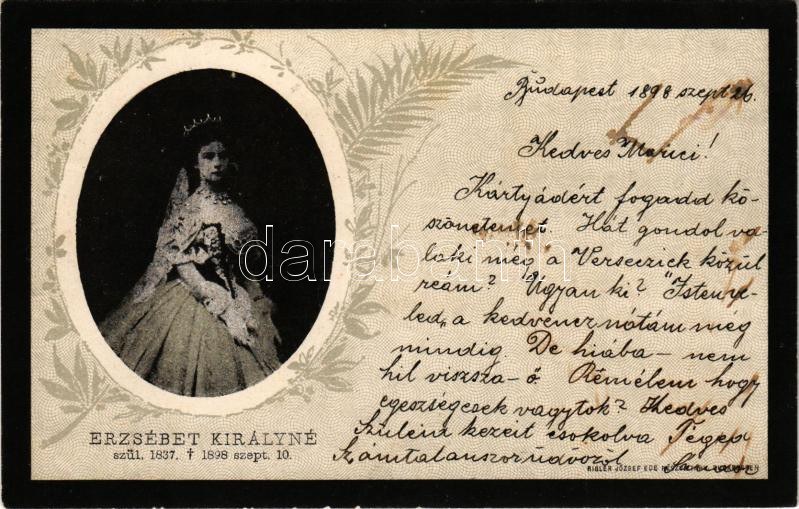 Budapest 1898 szept 26.
Kedves Marici!
Kártyádért fogadd kö-
szönetemet. Hát gondol va-
laki még a Verseczick közül
reám? Ugyan ki? "Istenve-
led" a kedvencz nótám még
mindig. De hiába - nem
hil viszsza - ő. Rémélem hogy
egeszségesek vagytok? Kedves
Szüleim kezeit csokolva Téged
Számtalanszor üdvözöl
ERZSÉBET KIRÁLYNÉ
szül. 1837. † 1898 szept. 10.
RIGLER JÓZSEF EDE
darabanth